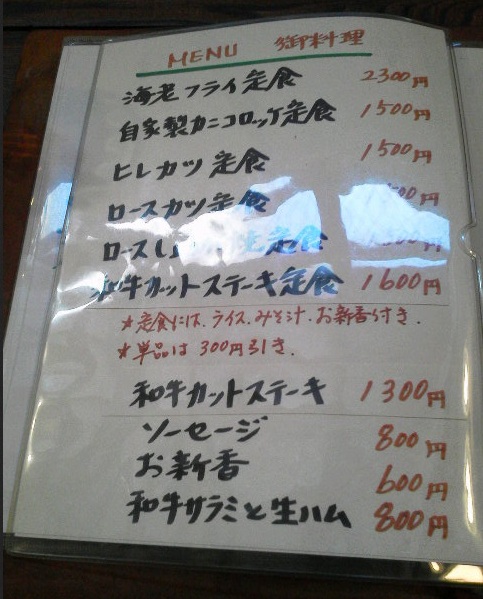 MENU 御料理
海老フライ定食 2300円
自家製カニコロッケ定食 1500円
ヒレカツ定食 1500円
ロースカツ定食 00円
ロースし 焼定食 00円
和牛カットステーキ定食 1600円
★定食には、ライス、みそ汁、お新香付き.
★単品は300円引き.
和牛カットステーキ 1300円
ソーセージ 800円
お新香 600円
和牛サラミと生ハム 800円